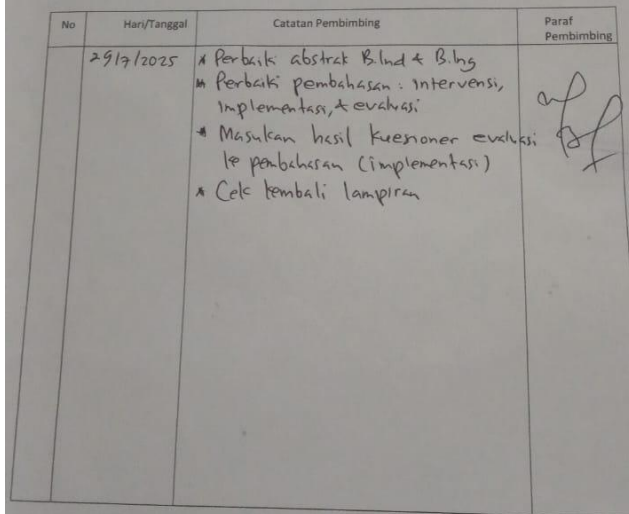 No Hari/Tanggal Catatan Pembimbing Paraf Pembimbing
29/7/2025 * Perbaiki abstrak B.Ind & B.Ing
* Perbaiki pembahasan : intervensi,
implementasi, & evaluasi
* Masukan hasil kuesioner evaluasi
ke pembahasan (implementasi)
* Cek kembali lampiran